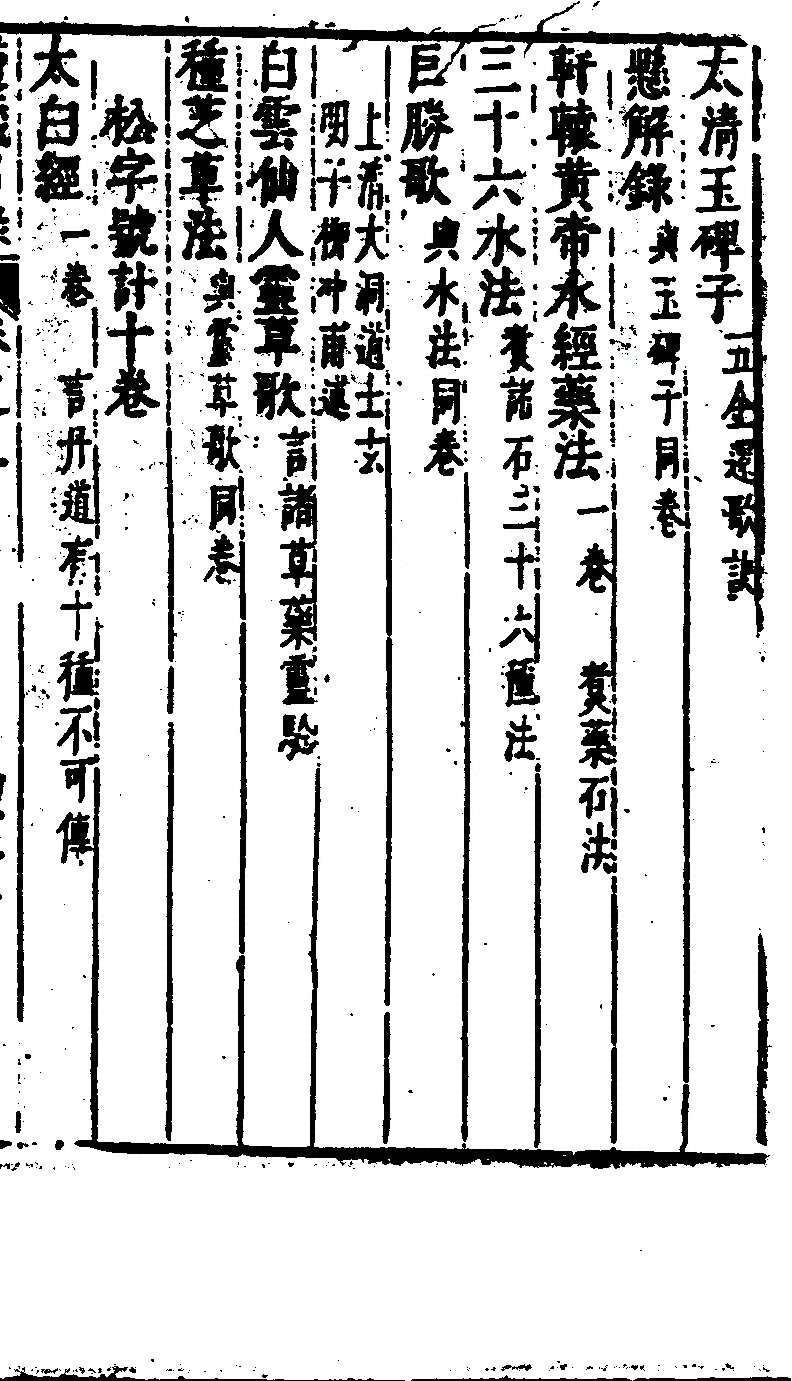 太清玉碑子 五金還歌訣
懸解錄 與玉碑子同卷
軒轅黃帝水經藥法 一卷 煑藥石法
三十六水法 煑諸石三十六種法
巨勝歌 與水法同卷
上清大洞道士玄
明子柳冲
白雲仙人靈草歌 言諸草藥靈驗
種芝草法 與靈草歌同卷
松字號計十卷
太白經 一卷 言丹道有十種不可傳